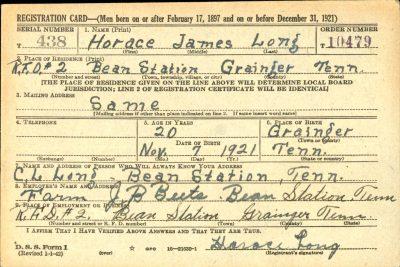 REGISTRATION CARD—(Men born on or after February 17, 1897 and on or before December 31, 1921)
SERIAL NUMBER 1. NAME (Print) ORDER NUMBER
T 438 Horace James Long 10479
(First) (Middle) (Last)
2. PLACE OF RESIDENCE (Print)
R.F.D.#2 Bean Station Grainger Tenn.
(Number and street) (Town, township, village, or city) (County) (State)
[THE PLACE OF RESIDENCE GIVEN ON THE LINE ABOVE WILL DETERMINE LOCAL BOARD
JURISDICTION; LINE 2 OF REGISTRATION CERTIFICATE WILL BE IDENTICAL]
3. MAILING ADDRESS
Same
[Mailing address if other than place indicated on line 2. If same insert word same]
4. TELEPHONE 5. AGE IN YEARS 6. PLACE OF BIRTH
20 Grainger
DATE OF BIRTH (Town or county)
Nov. 7 1921 Tenn.
(Exchange) (Number) (Mo.) (Day) (Yr.) (State or country)
7. NAME AND ADDRESS OF PERSON WHO WILL ALWAYS KNOW YOUR ADDRESS
C.L. Long - Bean Station, Tenn.
8. EMPLOYER'S NAME AND ADDRESS
Farm B Beets. Bean Station Tenn
9. PLACE OF EMPLOYMENT OR BUSINESS
R.F.D.#2, Bean Station Grainger Tenn.
(Number and street or R. F. D. number) (Town) (County) (State)
I AFFIRM THAT I HAVE VERIFIED ABOVE ANSWERS AND THAT THEY ARE TRUE.
D. S. S. Form 1 16—21630-1 Horace Long
(Revised 1-1-42) (over) (Registrant's signature)